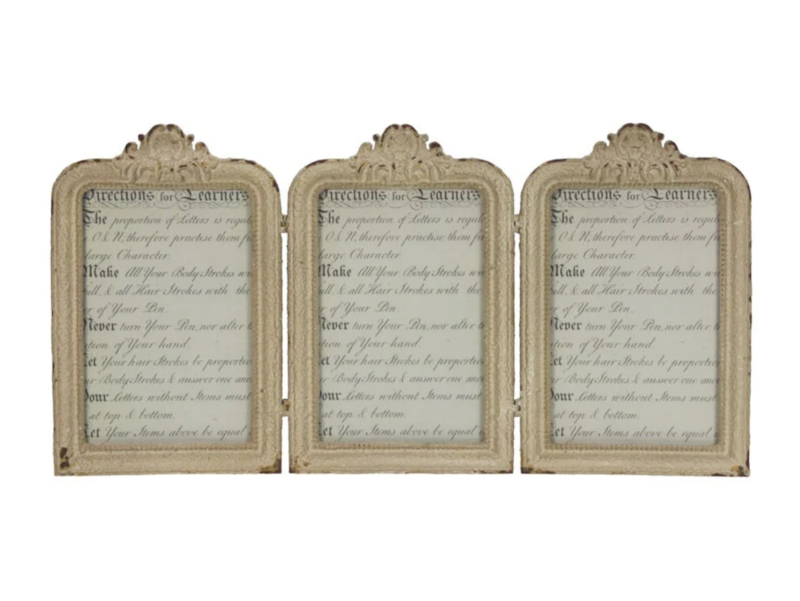 Directions for Learners
The proportion of Letters is regul
O & N, therefore practise them fi
large Character.
Make All Your Body Strokes w
ull, & all Hair Strokes with the
r of Your Pen.
Never turn Your Pen, nor alter t
tion of Your hand.
Let Your hair Strokes be proportio
ur Body Strokes & answer one ano
Your Letters without Stems must
at top & bottom.
Let Your Stems above be equal
Directions for Learners
The proportion of Letters is regul
O & N, therefore practise them fi
large Character.
Make All Your Body Strokes w
ull, & all Hair Strokes with the
r of Your Pen.
Never turn Your Pen, nor alter t
tion of Your hand.
Let Your hair Strokes be proportio
ur Body Strokes & answer one ano
Your Letters without Stems must
at top & bottom.
Let Your Stems above be equal
Directions for Learners
The proportion of Letters is regul
O & N, therefore practise them fi
large Character.
Make All Your Body Strokes w
ull, & all Hair Strokes with the
r of Your Pen.
Never turn Your Pen, nor alter t
tion of Your hand.
Let Your hair Strokes be proportio
ur Body Strokes & answer one ano
Your Letters without Stems must
at top & bottom.
Let Your Stems above be equal